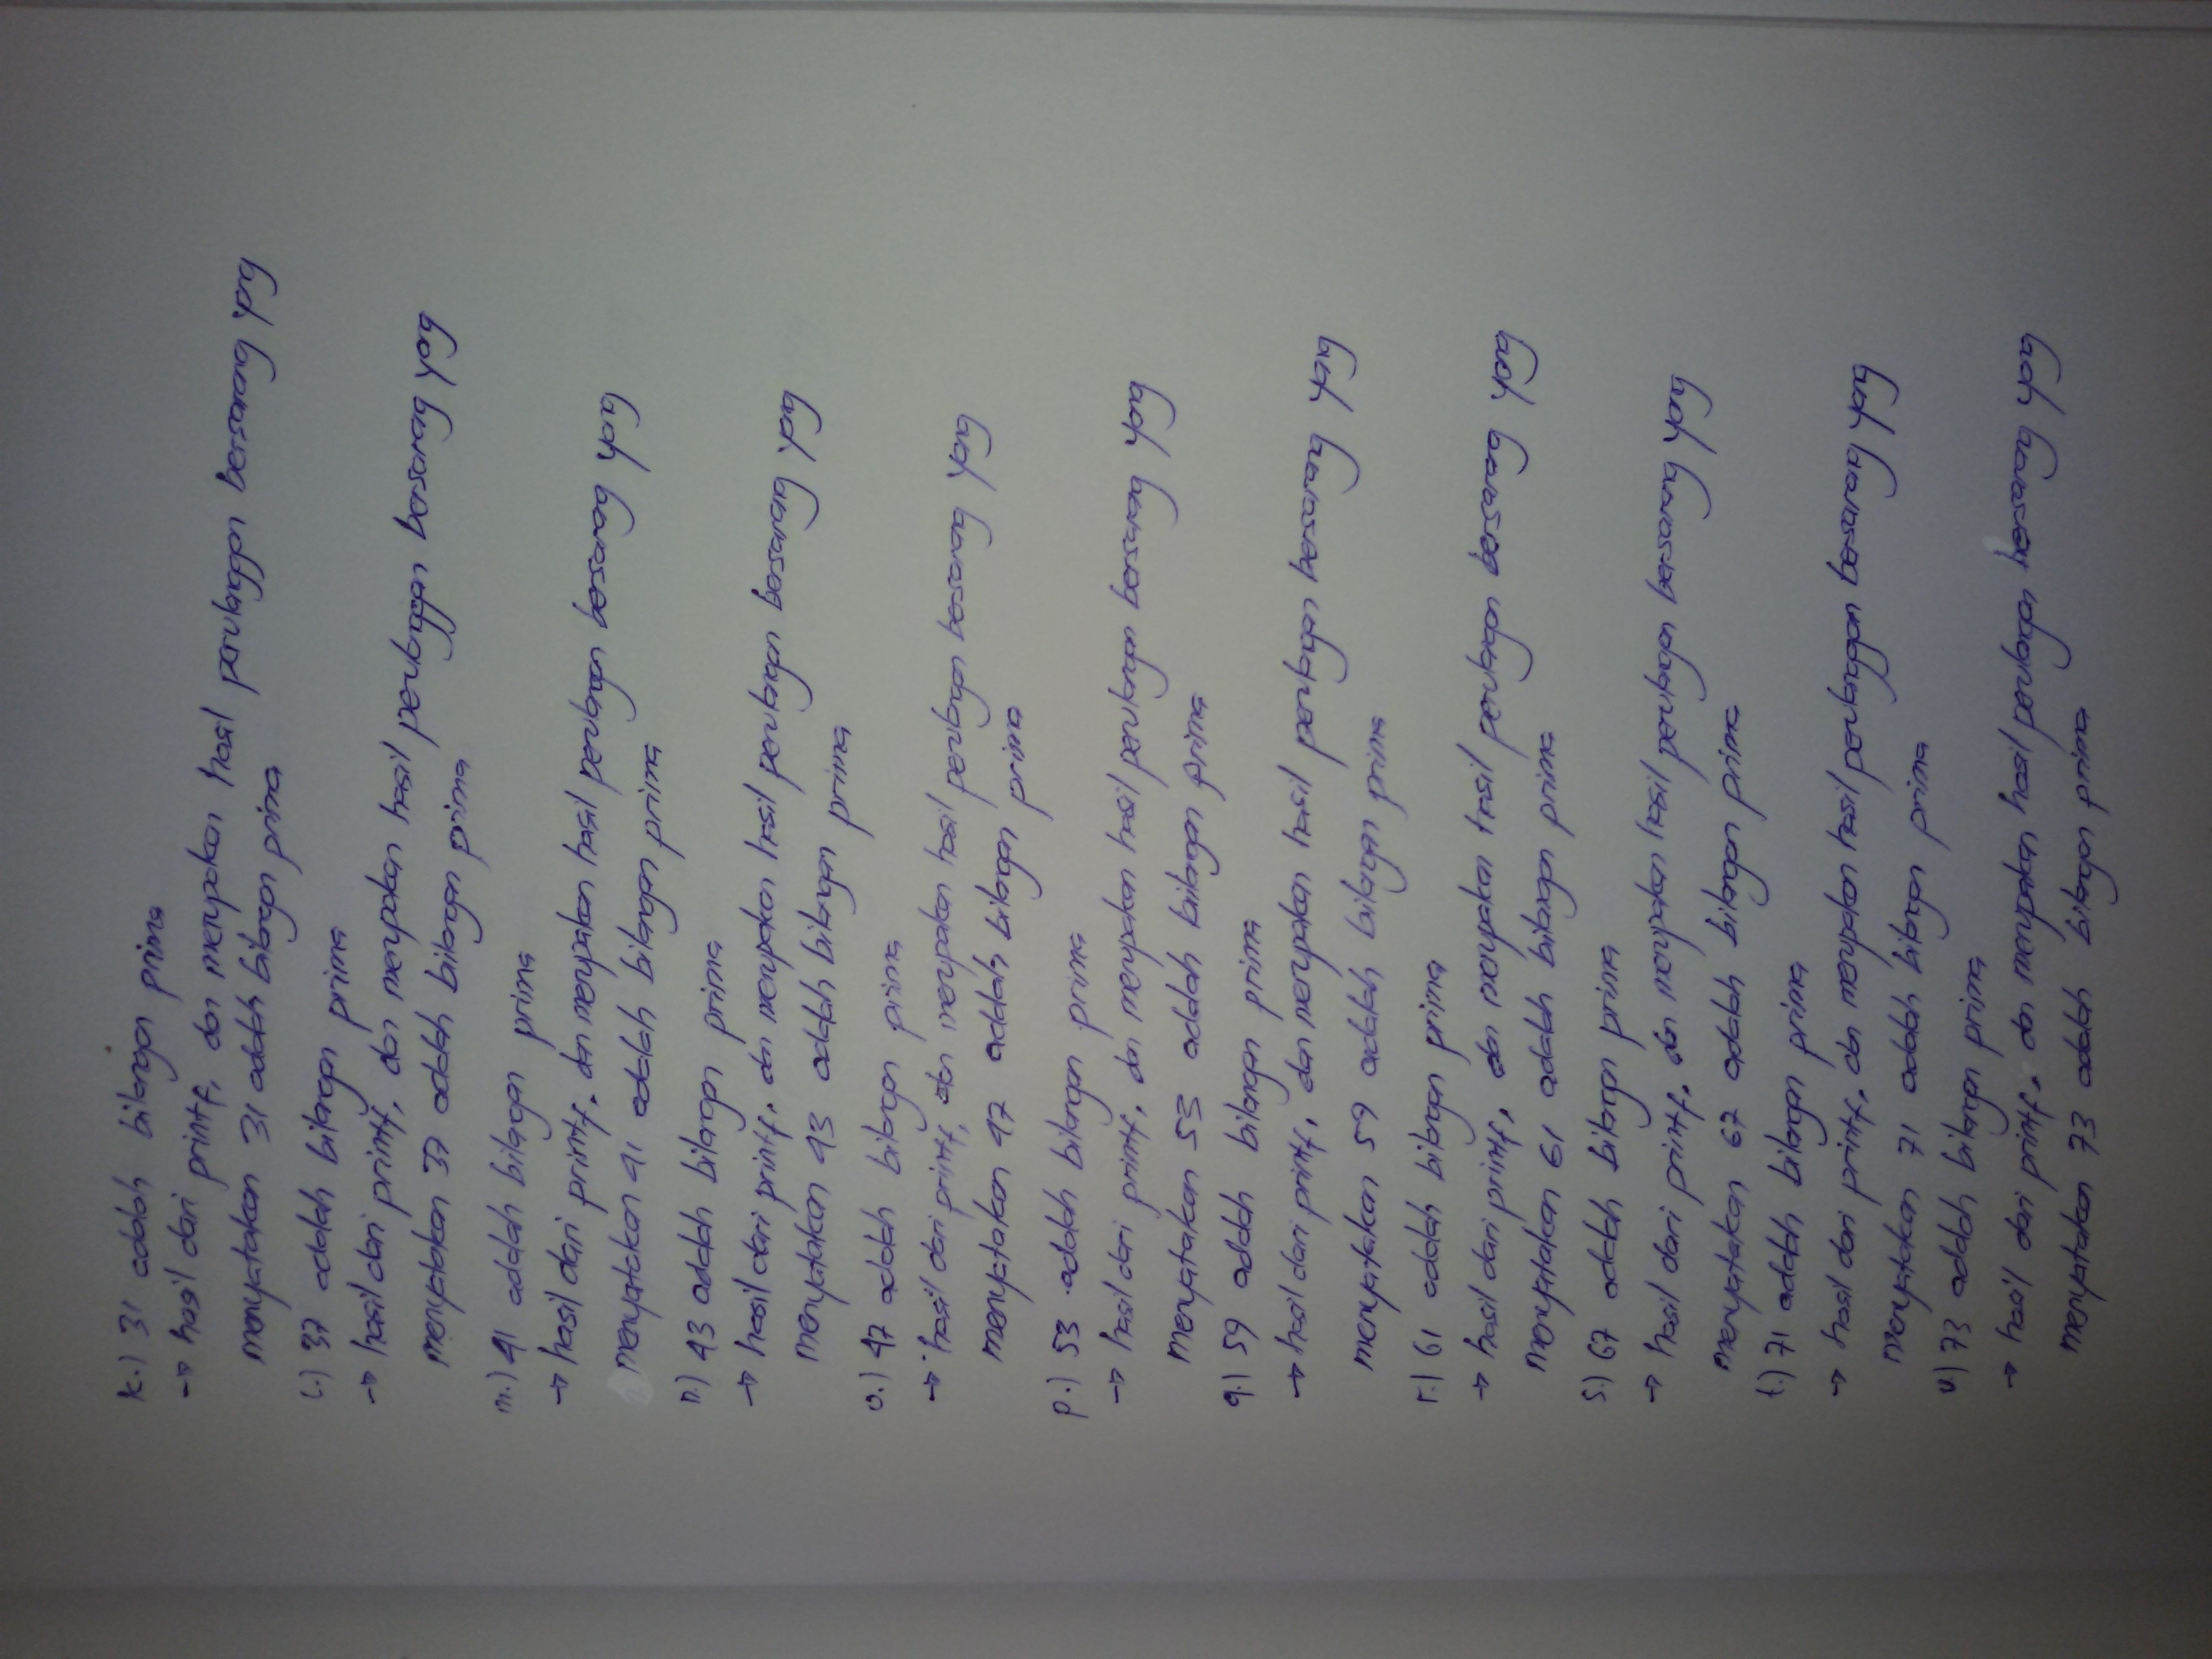 k.) 31 adalah bilangan prima
→ hasil dari printf, dan merupakan hasil perulanggan bersarang yang
menyatakan 31 adalah bilangan prima
l.) 37 adalah bilangan prima
→ hasil dari printf, dan merupakan hasil perulanggan bersarang yang
menyatakan 37 adalah bilangan prima
m.) 41 adalah bilangan prima
→ hasil dari printf, dan merupakan hasil perulangan bersarang yang
menyatakan 41 adalah bilangan prima
n.) 43 adalah bilangan prima
→ hasil dari printf, dan merupakan hasil perulangan bersarang yang
menyatakan 43 adalah bilangan prima
o.) 47 adalah bilangan prima
→ hasil dari printf, dan merupakan hasil perulangan bersarang yang
menyatakan 47 adalah bilangan prima
p.) 53 adalah bilangan prima
→ hasil dari printf, dan merupakan hasil perulangan bersarang yang
menyatakan 53 adalah bilangan prima
q.) 59 adalah bilangan prima
→ hasil dari printf, dan merupakan hasil perulangan bersarang yang
menyatakan 59 adalah bilangan prima
r.) 61 adalah bilangan prima
→ hasil dari printf, dan merupakan hasil perulangan bersarang yang
menyatakan 61 adalah bilangan prima
s.) 67 adalah bilangan prima
→ hasil dari printf, dan merupakan hasil perulangan bersarang yang
menyatakan 67 adalah bilangan prima
t.) 71 adalah bilangan prima
→ hasil dari printf, dan merupakan hasil perulanggan bersarang yang
menyatakan 71 adalah bilangan prima
u.) 73 adalah bilangan prima
→ hasil dari printf, dan merupakan hasil perulangan bersarang yang
menyatakan 73 adalah bilangan prima